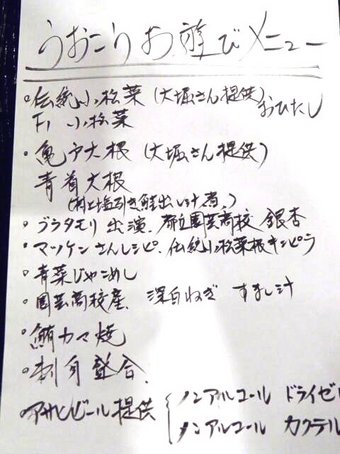 うおこりお遊びメニュー
・伝統小松菜(大堀さん提供)おひたし
下小松菜
・亀戸大根(大堀さん提供)
青首大根
(村上塩引き鮭出し汁煮)
・ブラタモリ出演、都立園芸高校銀杏
・マッケンさんレシピ、伝統小松菜根キンピラ
・青菜じゃこめし
・園芸高校産、深谷ねぎすまし汁
・鮪カマ焼
・刺身盛合
アサヒビール提供 ノンアルコール ドライゼ
ノンアルコール カクテル